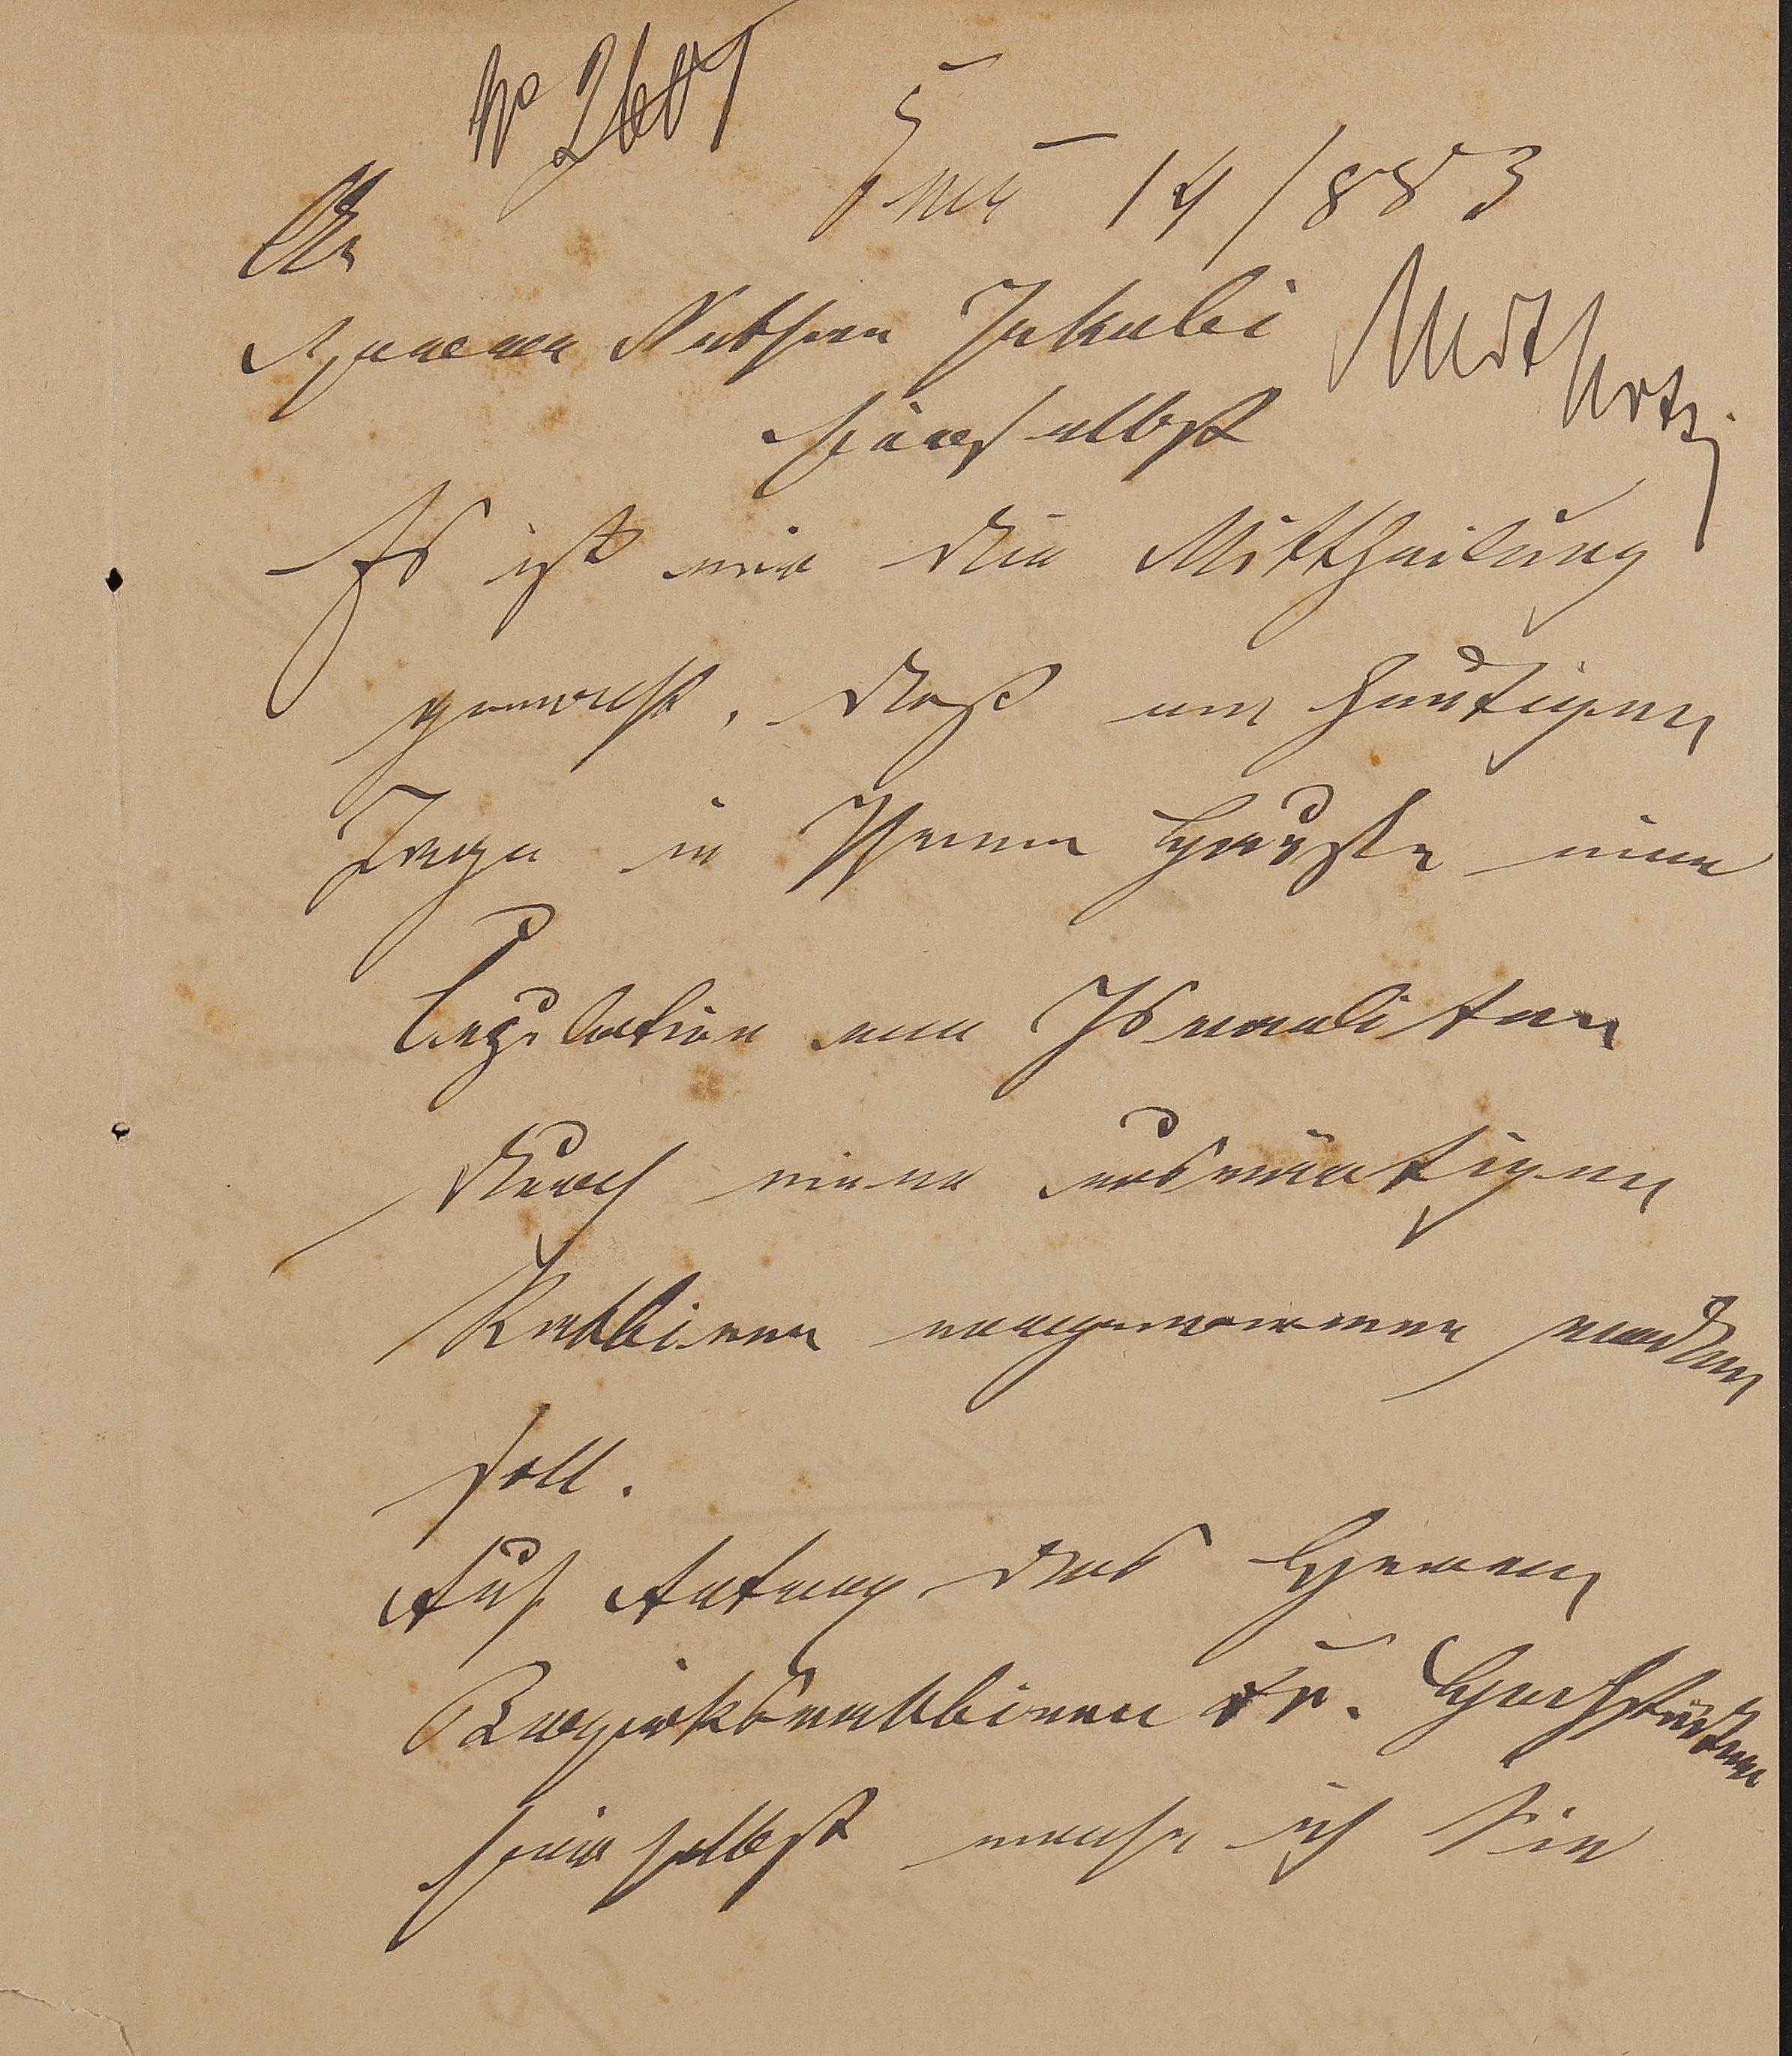 No 2601
5/III 14/883
An
Herrn Nathan Jakobi
hierselbst
Es ist mir die Mittheilung
gemacht, daß am heutigen
Tage in Ihrem Hause eine
Copulation von Israeliten
durch einen auswärtigen
Rabbiner vorgenommen werden
soll.
Auf Antrag des Herrn
Bezirksrabbiner Dr. Hochstädter
hierselbst mache ich Sie